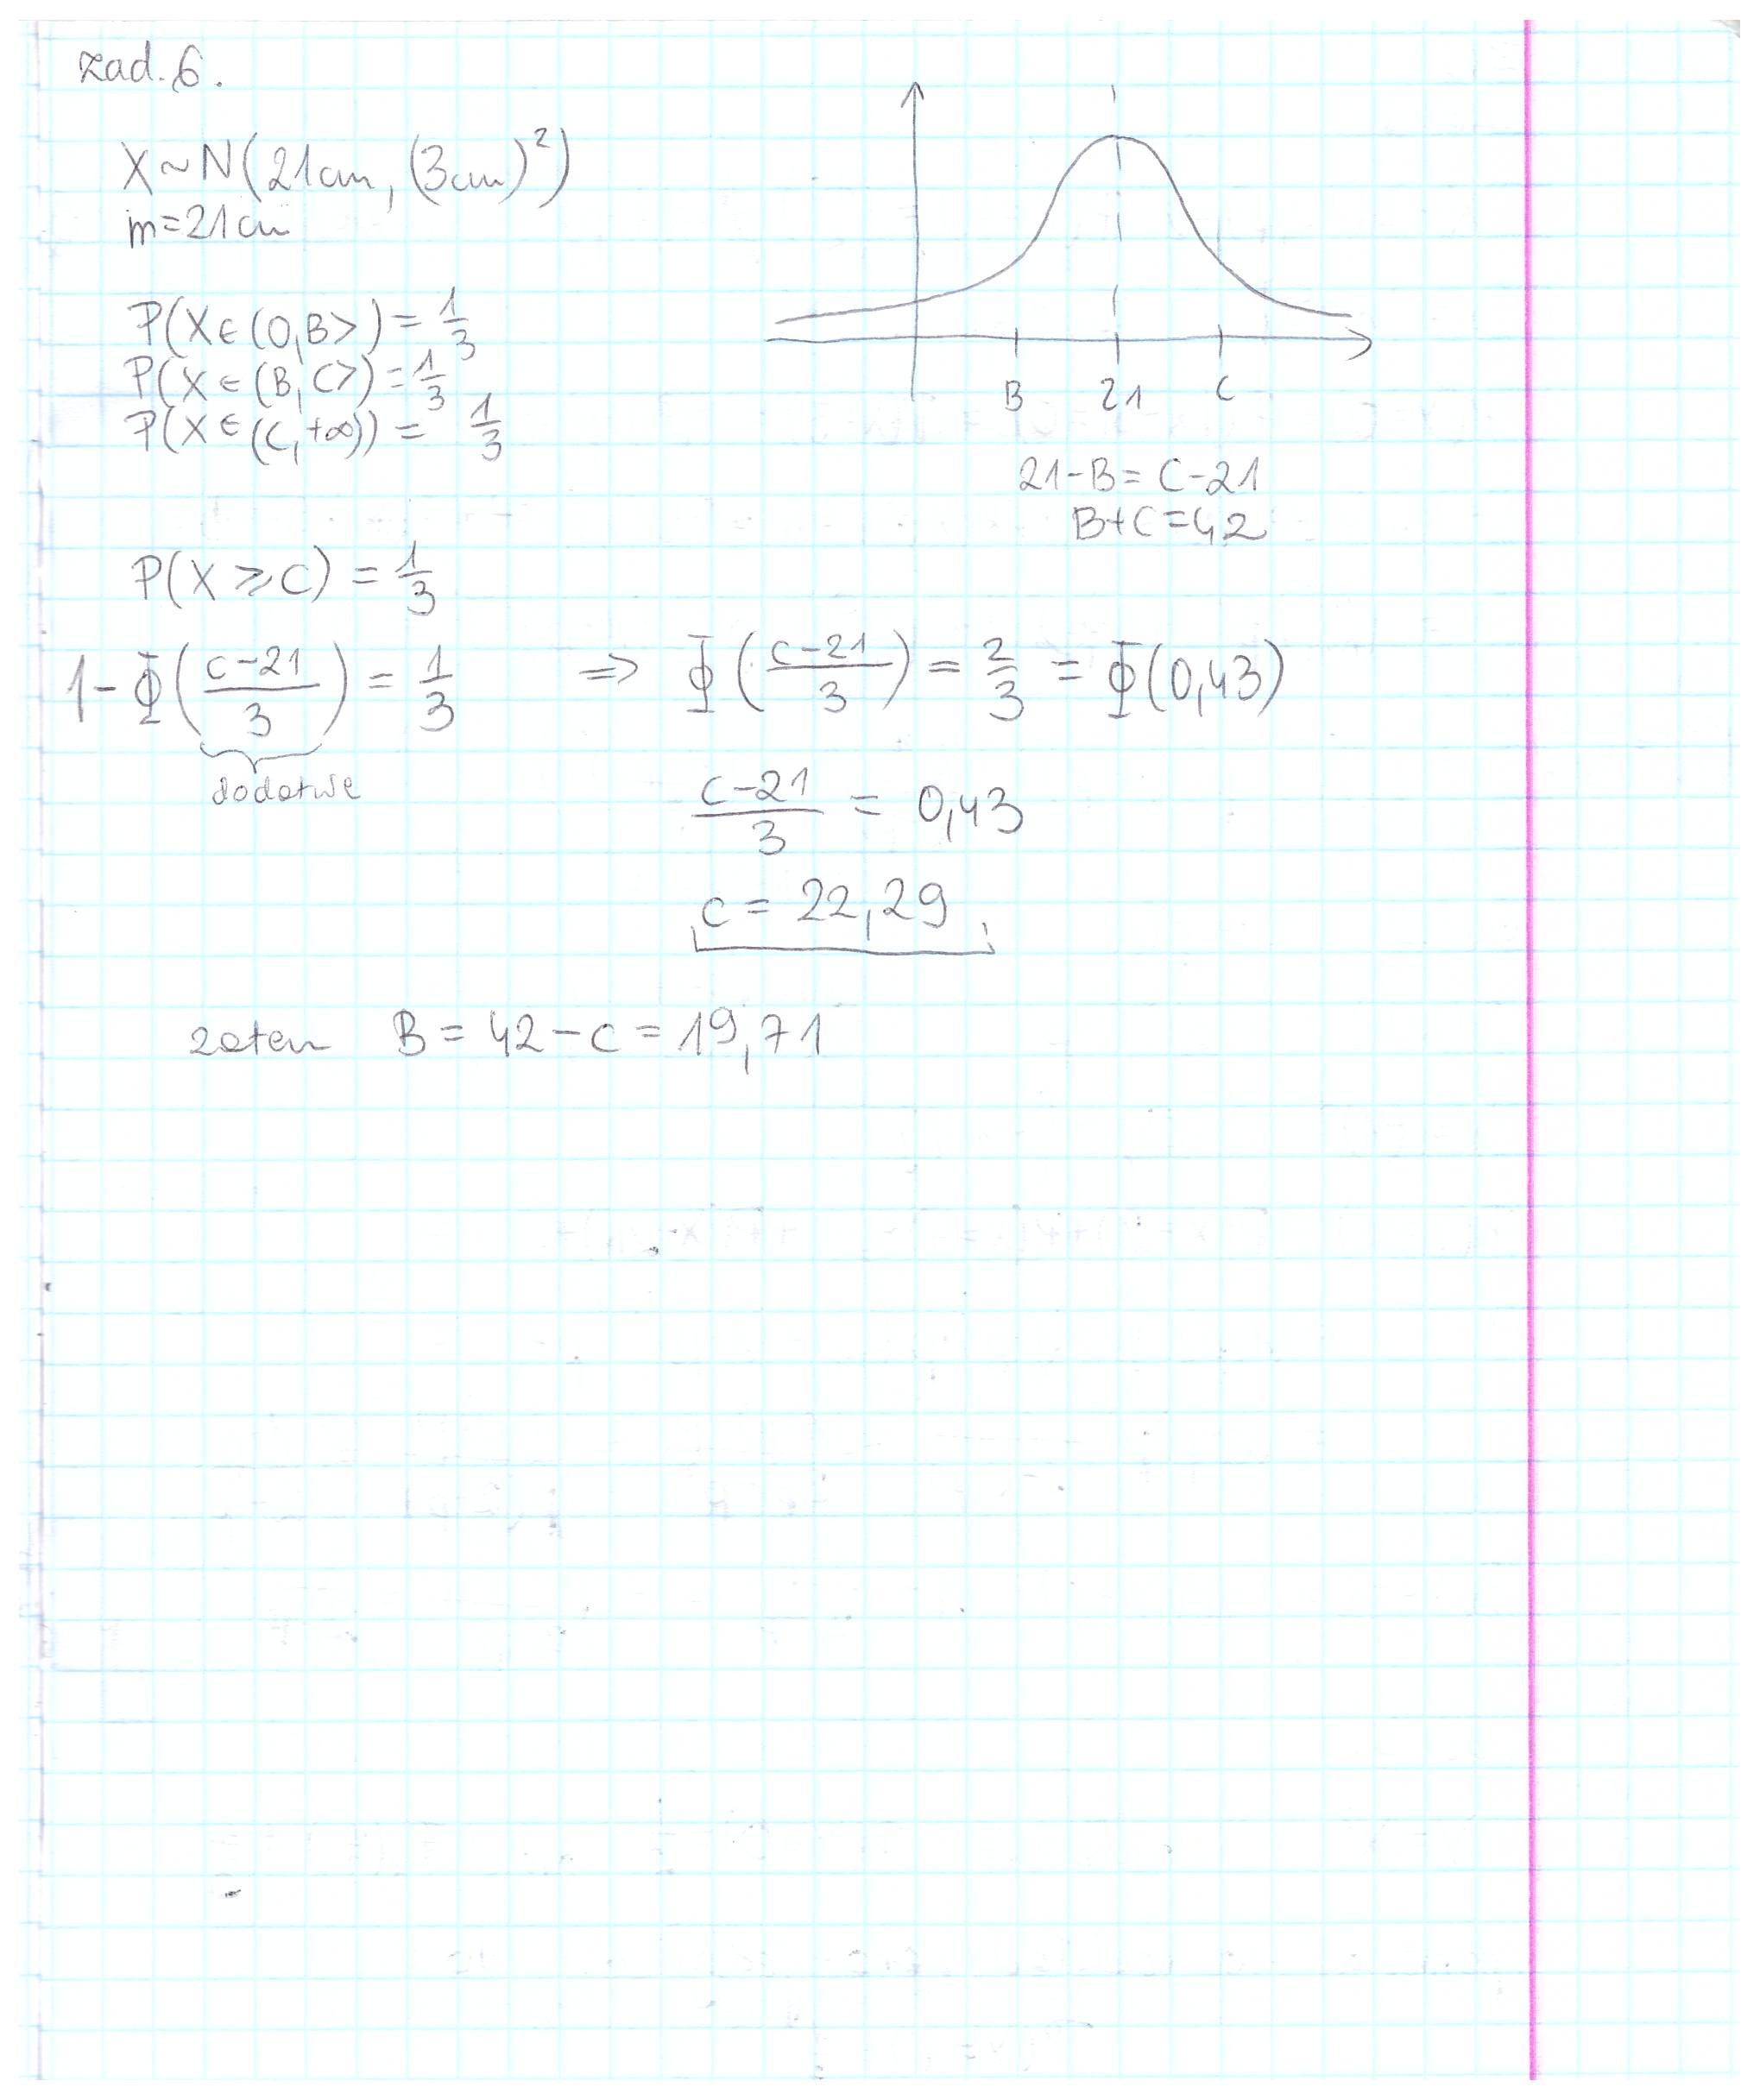 zad. 6.
X~N(21cm, (3cm)²)
m=21cm
P(X∈(0,B>)=1/3
P(X∈(B,C>)=1/3
P(X∈(C,+∞))=1/3
B 21 C
21-B=C-21
B+C=42
P(X⩾C)=1/3
1-Φ((C-21)/3)=1/3 ⇒ Φ((C-21)/3)=2/3=Φ(0,43)
dodatnie
(C-21)/3=0,43
C=22,29
zatem B=42-C=19,71